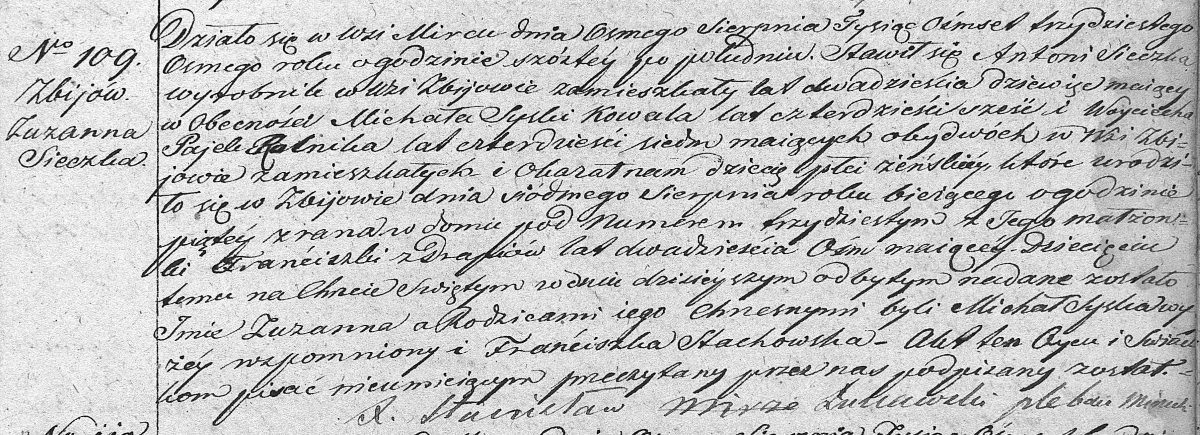 No 109.
Zbijow.
Zuzanna
Sieczka.
Działo się w Wsi Mircu dnia Osmego Sierpnia Tysiąc Ośmset trzydziestego
Osmego roku o godzinie szóstéy po południu. Stawił się Antoni Sieczka
wyrobnik w Wsi Zbijowie zamieszkały lat dwadzieścia dziewięć maiący
w Obecności Michała Syski Kowala lat czterdzieści sześć i Woyciecha
Pajek Rolnika lat czterdzieści siedm maiących obydwoch w Wsi Zbi-
jowie zamieszkałych i Okazał nam dziecię płci żeńskiéy, które urodzi-
ło się w Zbijowie dnia siódmego Sierpnia roku bieżącego o godzinie
piątéy z rana w domu pod Numerem trzydziestym z Jego małżon-
ki Franciszki z Drapiów lat dwadzieścia Ośm maiącéy. Dziecięciu
temu na Chrcie Swiętym w dniu dzisieyszym odbytym nadane zostało
Imie Zuzanna a Rodzicami iego Chrzesnymi byli Michał Syska wy
żéy wspomniony i Franciszka Stachowska – Akt ten Oycu i Swiad-
kom pisać nieumieiącym przeczytany przez nas podpisany został. –
X. Stanisław pleban